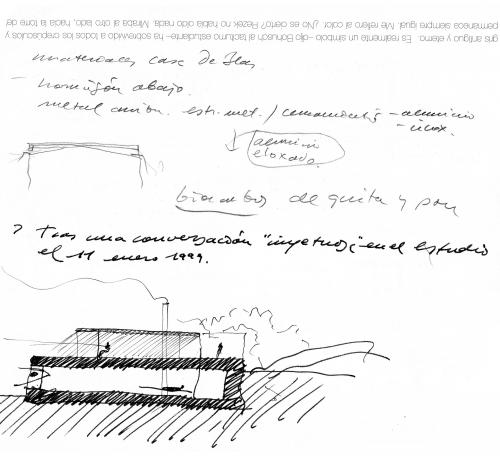 gris antiguo y eterno. Es realmente un símbolo –dijo Bohusch al taciturno estudiante– ha sobrevivido a todos los crepúsculos y
permanece siempre igual. Me refiero al color. ¿No es cierto? Rezek no había oído nada. Miraba al otro lado, hacia la torre del
materiales casa de Blas
– hormigón abajo.
metal arriba. estr. met. / – aluminio
– inox.
aluminio
eloxado.
biombos de quita y pon
Tras una conversación en el estudio
el 11 enero 1999.